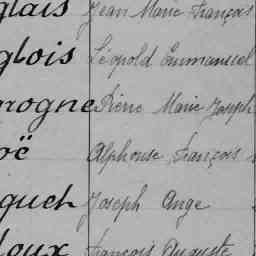 glais Jean Marie François
glois Léopold Emmanuel
rogne Pierre Marie Joseph
oë Alphonse François
quet Joseph Ange
loux François Auguste